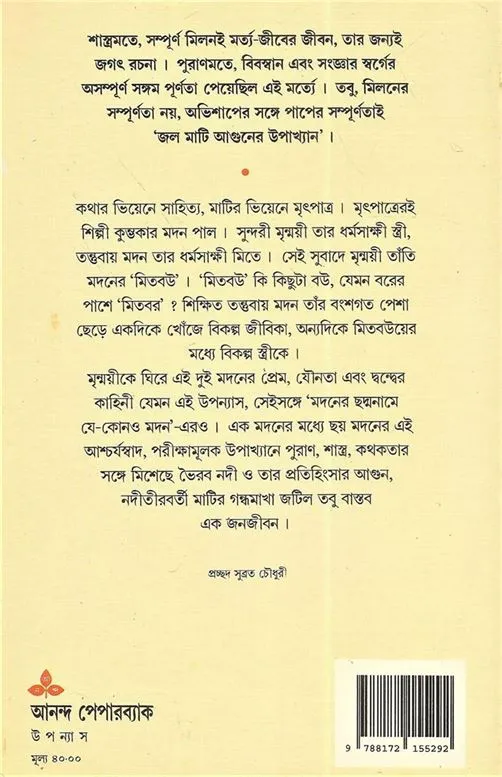 শাস্ত্রমতে, সম্পূর্ণ মিলনই মর্ত্য-জীবের জীবন, তার জন্যই
জগৎ রচনা । পুরাণমতে, বিবস্বান এবং সংজ্ঞার স্বর্গের
অসম্পূর্ণ সঙ্গম পূর্ণতা পেয়েছিল এই মর্ত্যে । তবু, মিলনের
সম্পূর্ণতা নয়, অভিশাপের সঙ্গে পাপের সম্পূর্ণতাই
‘জল মাটি আগুনের উপাখ্যান’ ।
কথার ভিয়েনে সাহিত্য, মাটির ভিয়েনে মৃৎপাত্র । মৃৎপাত্রেরই
শিল্পী কুম্ভকার মদন পাল । সুন্দরী মৃন্ময়ী তার ধর্মসাক্ষী স্ত্রী,
তন্তুবায় মদন তার ধর্মসাক্ষী মিতে । সেই সুবাদে মৃন্ময়ী তাঁতি
মদনের ‘মিতবউ’ । ‘মিতবউ’ কি কিছুটা বউ, যেমন বরের
পাশে ‘মিতবর’ ? শিক্ষিত তন্তুবায় মদন তাঁর বংশগত পেশা
ছেড়ে একদিকে খোঁজে বিকল্প জীবিকা, অন্যদিকে মিতবউয়ের
মধ্যে বিকল্প স্ত্রীকে ।
মৃন্ময়ীকে ঘিরে এই দুই মদনের প্রেম, যৌনতা এবং দ্বন্দ্বের
কাহিনী যেমন এই উপন্যাস, সেইসঙ্গে ‘মদনের ছদ্মনামে
যে-কোনও মদন’-এরও । এক মদনের মধ্যে ছয় মদনের এই
আশ্চর্যস্বাদ, পরীক্ষামূলক উপাখ্যানে পুরাণ, শাস্ত্র, কথকতার
সঙ্গে মিশেছে ভৈরব নদী ও তার প্রতিহিংসার আগুন,
নদীতীরবর্তী মাটির গন্ধমাখা জটিল তবু বাস্তব
এক জনজীবন ।
প্রচ্ছদ সুব্রত চৌধুরী
আ
ন ন্দ
আনন্দ পেপারব্যাক
উ প ন্যা স
মূল্য ৪০·০০
9 788172 155292